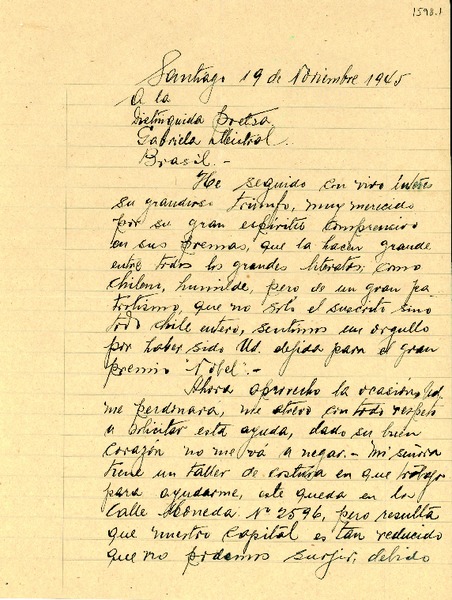 1598.1
Santiago 19 de Noviembre 1945
A la
Distinguida Poetsa
Gabriela Mistral.
Brasil.-
He seguido con vivo interes
su grandioso triunfo, muy merecido
por su gran espiritu comprensivo
en sus poemas, que la hacen grande
entre todos los grandes literatos; como
chileno, humilde, pero de un gran pa
triotismo, que no solo el suscrito sino
todo chile entero, sentimos un orgullo
por haber sido Ud. elejida para el gran
premio Nobel.-
Ahora aprovecho la ocasión, Ud.
me perdonara, me atrevo con todo respeto
a solicitar esta ayuda, dado su buen
corazón no me va a negar.- Mi señora
tiene un taller de costura en que trabaja
para ayudarme, este queda en la
Calle Moneda Nº 2596, pero resulta
que nuestro capital es tan reducido
que no podemos surjir, debido